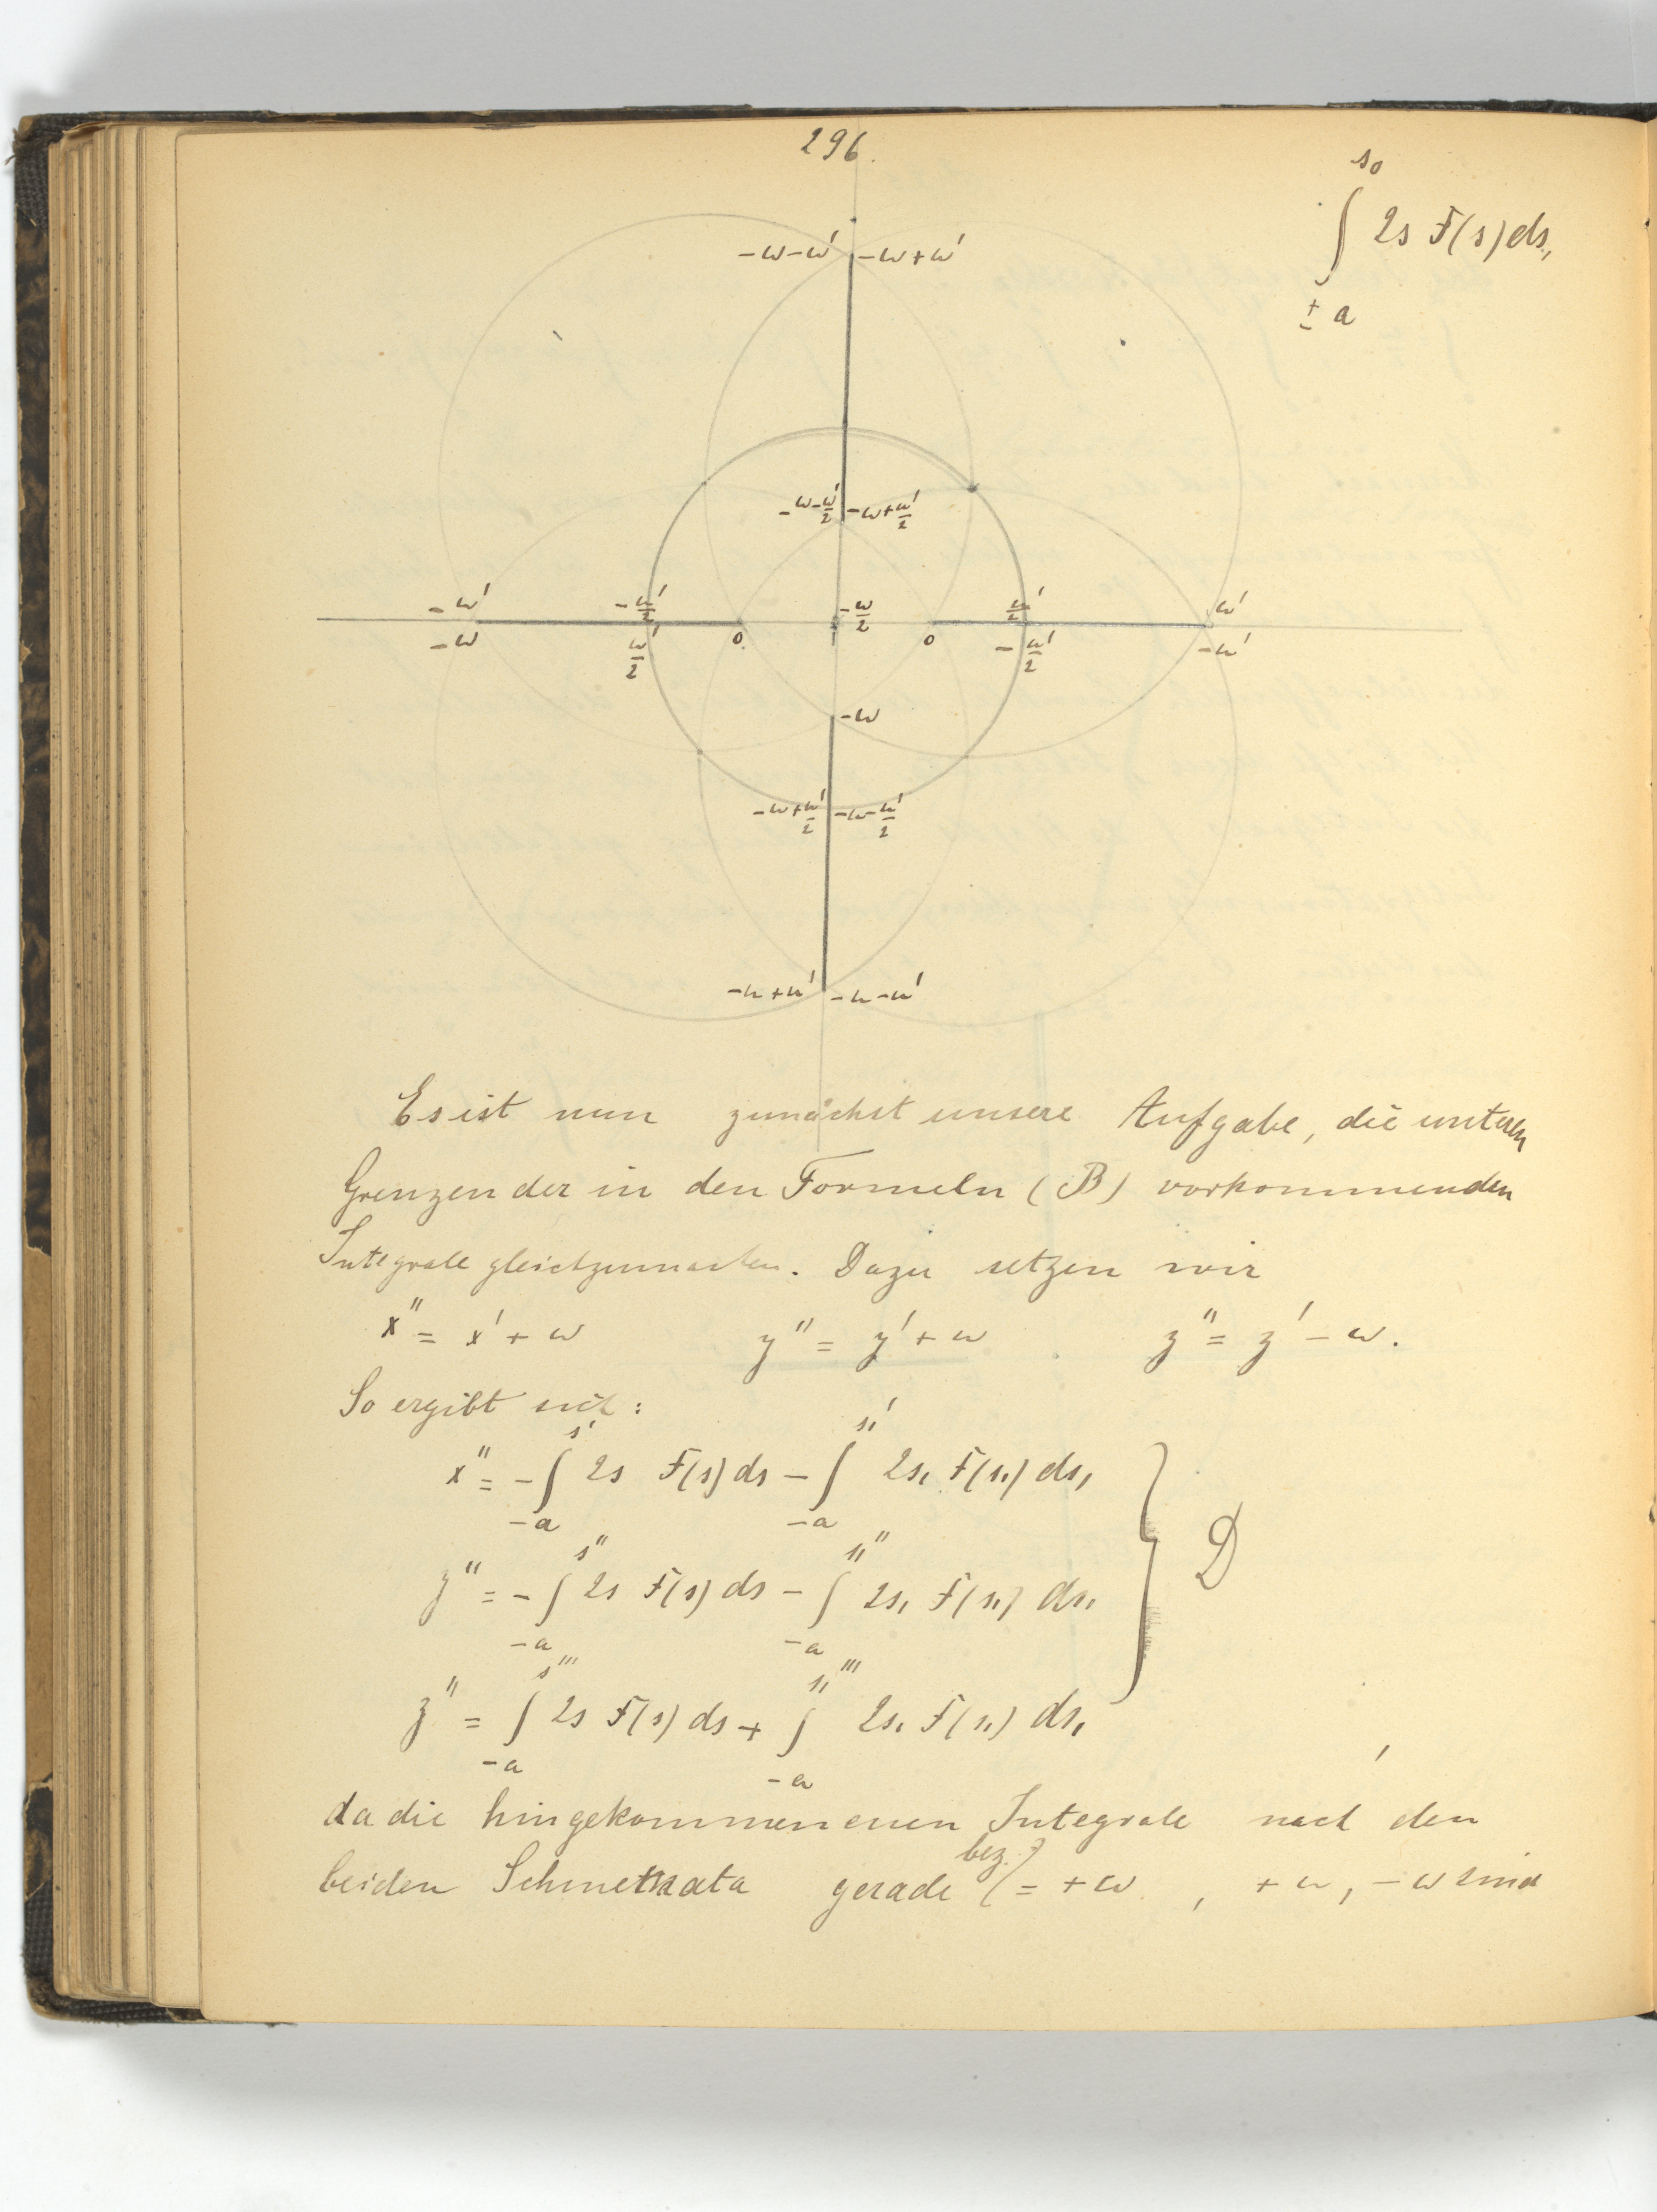 296.
s₀
∫ 2s F(s) ds,
± a
-ω-ω' -ω+ω'
-ω-ω'/2 -ω+ω'/2
-ω' -ω'/2 -ω/2 ω'/2 ω'
-ω ω'/2 0 0 -ω'/2 -ω'
-ω
-ω+ω'/2 -ω-ω'/2
-ω+ω' -ω-ω'
Es ist nun zunächst unsere Aufgabe, die unteren
Grenzen der in den Formeln (B) vorkommenden
Integrale gleichzumachen. Dazu setzen wir
x" = x' + ω y" = y' + ω z" = z' - ω.
So ergibt sich:
s' s₁'
x" = -∫ 2s F(s) ds - ∫ 2s₁ F(s₁) ds₁
-a -a
s" s₁"
y" = -∫ 2s F(s) ds - ∫ 2s₁ F(s₁) ds₁ } D
-a -a
s''' s₁'''
z" = ∫ 2s F(s) ds + ∫ 2s₁ F(s₁) ds₁
-a -a
da die hingekommenenen Integrale nach den
beiden gerade (bez.) = +ω, +ω, -ω sind